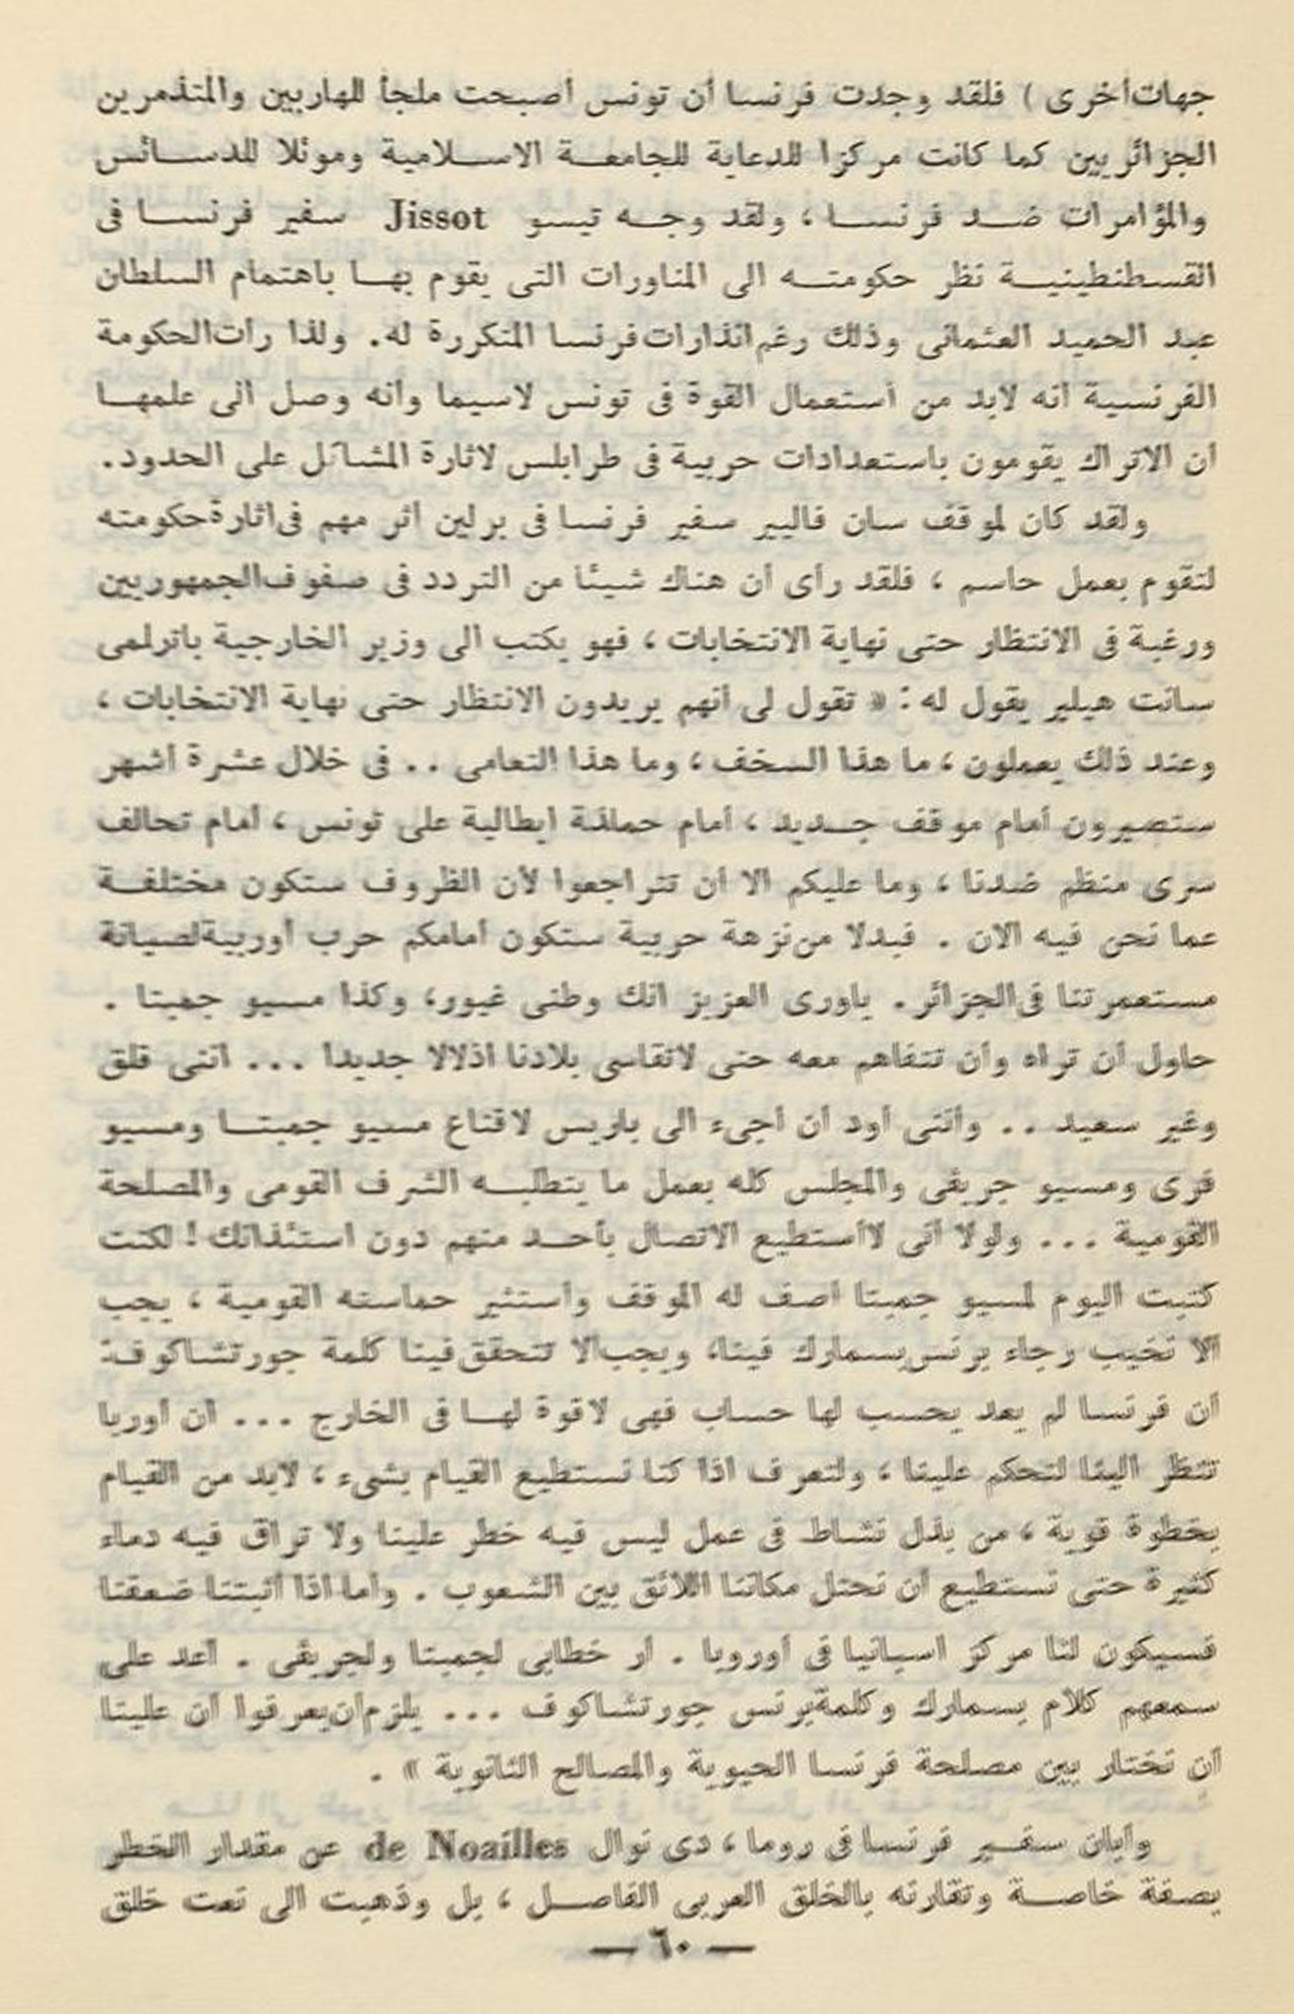 جهات أخرى ) فلقد وجدت فرنسا أن تونس أصبحت ملجأ للهاربين والمتذمرين
الجزائريين كما كانت مركزا للدعاية للجامعة الاسلامية وموئلا للدسائس
والمؤامرات ضد فرنسا ، ولقد وجه تيسو Jissot سفير فرنسا فى
القسطنطينية نظر حكومته الى المناورات التى يقوم بها باهتمام السلطان
عبد الحميد العثمانى وذلك رغم انذارات فرنسا المتكررة له . ولذا رأت الحكومة
الفرنسية أنه لابد من استعمال القوة فى تونس لاسيما وأنه وصل الى علمها
أن الاتراك يقومون باستعدادات حربية فى طرابلس لاثارة المشاكل على الحدود .
ولقد كان لموقف سان فاليير سفير فرنسا فى برلين أثر مهم فى اثارة حكومته
لتقوم بعمل حاسم ، فلقد رأى أن هناك شيئا من التردد فى صفوف الجمهوريين
ورغبة فى الانتظار حتى نهاية الانتخابات ، فهو يكتب الى وزير الخارجية باترلمى
سانت هيلير يقول له : « تقول لى أنهم يريدون الانتظار حتى نهاية الانتخابات ،
وعند ذلك يعملون ، ما هذا السخف ، وما هذا التعامى . . فى خلال عشرة أشهر
ستصيرون أمام موقف جديد ، أمام حملة ايطالية على تونس ، أمام تحالف
سرى منظم ضدنا ، وما عليكم الا أن تتراجعوا لأن الظروف ستكون مختلفة
عما نحن فيه الآن . فبدلا من نزهة حربية ستكون أمامكم حرب أوربية لصيانة
مستعمرتنا فى الجزائر . ياورى العزيز انك وطنى غيور ، وكذا مسيو جمبتا .
حاول أن تراه وأن تتفاهم معه حتى لاتقاسى بلادنا اذلالا جديدا ... اننى قلق
وغير سعيد . . وأننى أود أن أجىء الى باريس لاقناع مسيو جمبتا ومسيو
فرى ومسيو جريفى والمجلس كله بعمل ما يتطلبه الشرف القومى والمصلحة
القومية ... ولولا أنى لاأستطيع الاتصال بأحد منهم دون استئذانك ! لكنت
كتبت اليوم لمسيو جمبتا أصف له الموقف وأستثير حماسته القومية ، يجب
ألا نخيب رجاء برنس بسمارك فينا ، ويجب ألا تتحقق فينا كلمة جورتشاكوف :
أن فرنسا لم يعد يحسب لها حساب فهى لاقوة لها فى الخارج ... أن أوربا
تنظر الينا لتحكم علينا ، ولتعرف اذا كنا نستطيع القيام بشىء ، لابد من القيام
بخطوة قوية ، من بذل نشاط فى عمل ليس فيه خطر علينا ولا تراق فيه دماء
كثيرة حتى نستطيع أن نحتل مكاننا اللائق بين الشعوب . وأما اذا أثبتنا ضعفنا
فسيكون لنا مركز اسبانيا فى أوروبا . أر خطابى لجمبتا ولجريفى . أعد على
سمعهم كلام بسمارك وكلمة برنس جورتشاكوف ... يلزم أن يعرفوا أن علينا
أن نختار بين مصلحة فرنسا الحيوية والمصالح الثانوية » .
وأبان سفير فرنسا فى روما ، دى نوال de Noailles عن مقدار الخطر
بصفة خاصة وتقارنه بالخلق العربى الفاصل ، بل وذهبت الى نعت خلق
— ٦٠ —